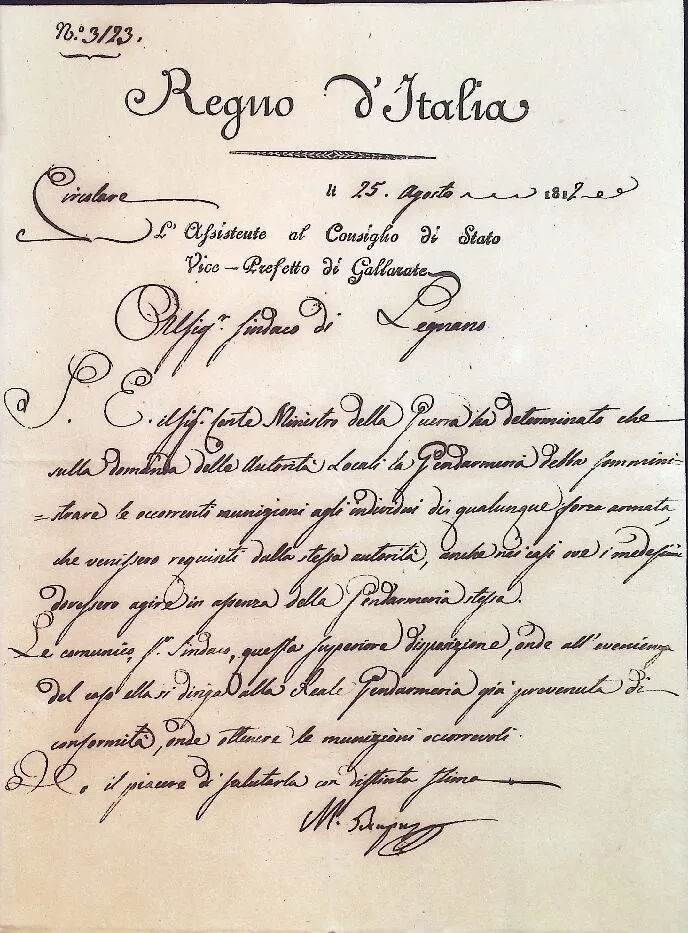 N.º 3123.
Regno d'Italia
Circolare li 25. Agosto 1812
L' Assistente al Consiglio di Stato
Vice-Prefetto di Gallarate
Al Sig.r Sindaco di Legnano
S. E. il Sig. Conte Ministro della Guerra ha determinato che
sulla domanda delle Autorità Locali la Gendarmeria debba sommini=
=strare le occorrenti munizioni agli individui di qualunque forza armata,
che venissero requisiti dalla stessa autorità, anche nei casi ove i medesimi
dovessero agire in assenza della Gendarmeria stessa.
Le comunico, Sr. Sindaco, questa superiore disposizione, onde all'evenienza
del caso ella si diriga alla Reale Gendarmeria già prevenuta di
conformità, onde ottenere le munizioni occorrevoli.
Ho il piacere di salutarla con distinta stima